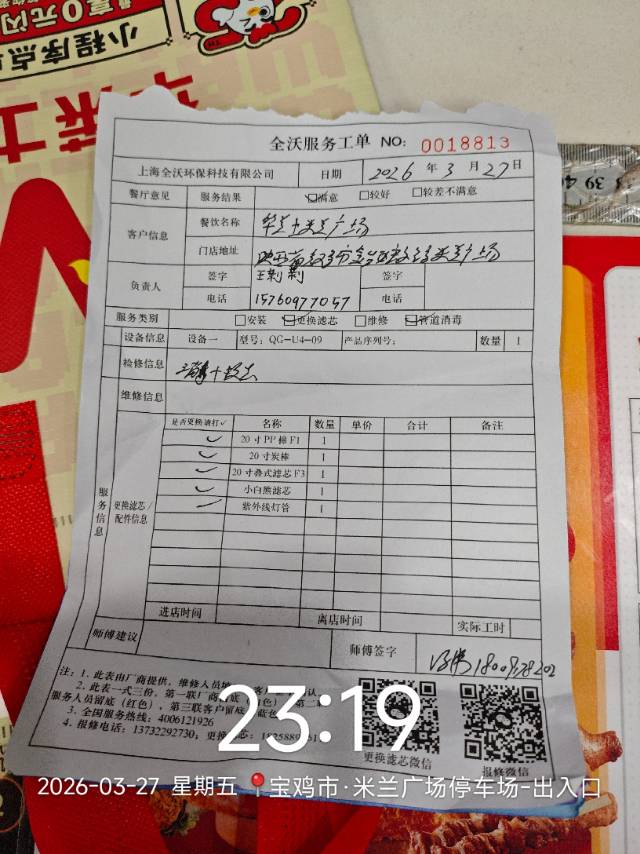 小程序点
享0元闪
华莱士
全沃服务工单 NO: 0018813
上海全沃环保科技有限公司 日期 2026 年 3 月 27 日
餐厅意见 服务结果 ☑满意 □较好 □较差不满意
客户信息 餐饮名称 华莱士米兰广场
门店地址
负责人 签字 王荆荆 签字
电话 15760977057 电话
服务类别 □安装 ☑更换滤芯 □维修 ☑管道消毒
设备信息 设备一 型号：QG-U4-09 产品序列号： 数量 1
检修信息
维修信息
服务信息 更换滤芯/配件信息
是否更换请打✓ 名称 数量 单价 合计 备注
✓ 20寸PP棉F1 1
✓ 20寸炭棒 1
✓ 20寸叠式滤芯F3 1
✓ 小白熊滤芯 1
✓ 紫外线灯管 1
进店时间 离店时间 实际工时
师傅建议 师傅签字
注：1. 此表由厂商提供，维修人员
2. 此表一式三份，第一联厂商
服务人员留底（红色），第三联客户留底
3. 全国服务热线：4006121926
4. 报修电话：13732292730；更换
更换滤芯微信 报修微信
39 40
23:19
2026-03-27 星期五 宝鸡市·米兰广场停车场-出入口